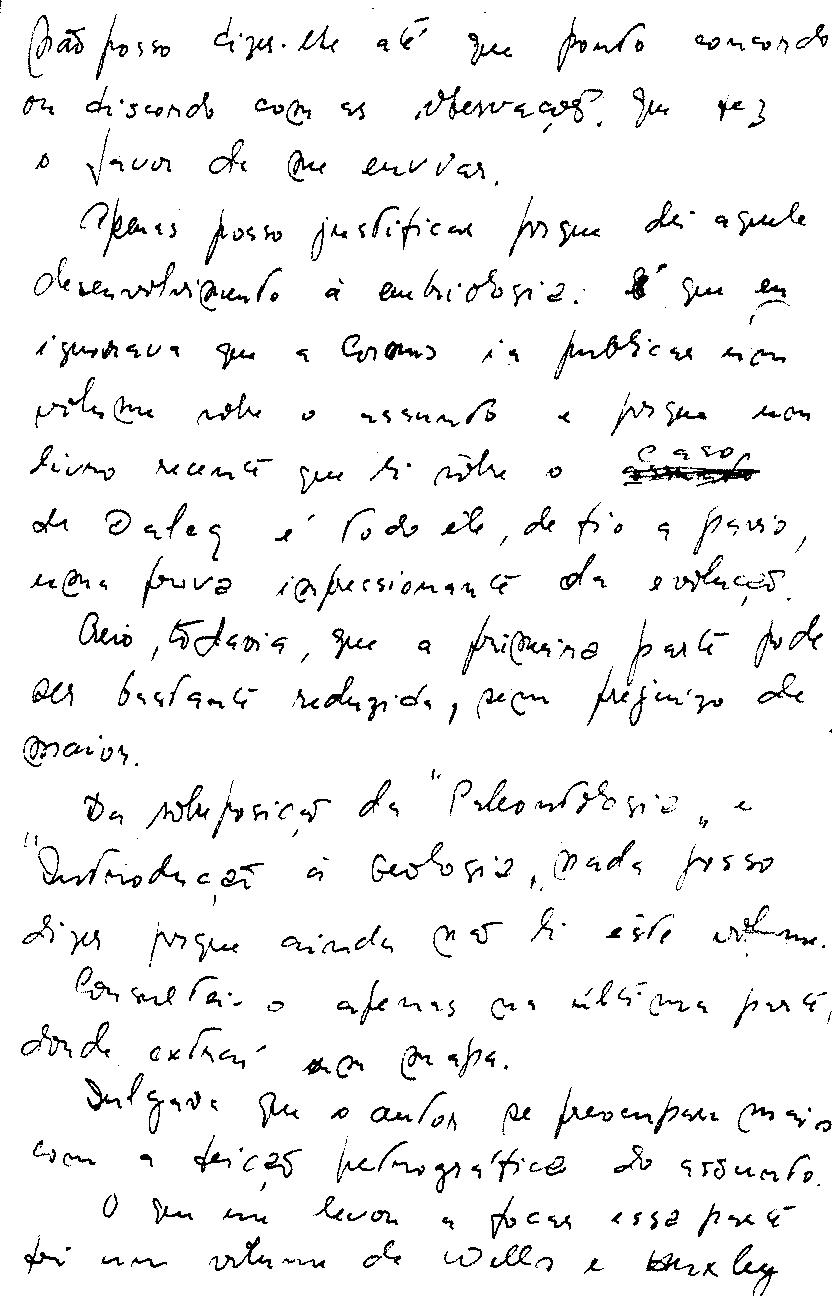 Não posso dizer-lhe até que ponto concordo
ou discordo com as observações que fez
o favor de me enviar.
Apenas posso justificar porque dei aquele
desenvolvimento à embriologia. É que eu
ignorava que a Cosmos ia publicar um
volume sôbre o assunto e porque um
livro recente que li sôbre o caso
de Dalcq é todo êle, de fio a pavio,
uma prova impressionante da evolução.
Creio, todavia, que a primeira parte pode
ser bastante reduzida, sem prejuízo de
maior.
Da sobreposição da "Paleontologia" e
"Introdução à Geologia" nada posso
dizer porque ainda não li êste volume.
Consultei-o apenas na última parte,
donde extraí um mapa.
Julgava que o autor se preocupara mais
com a feição petrográfica do assunto.
O que me levou a focar essa parte
foi um volume de Wells e Huxley